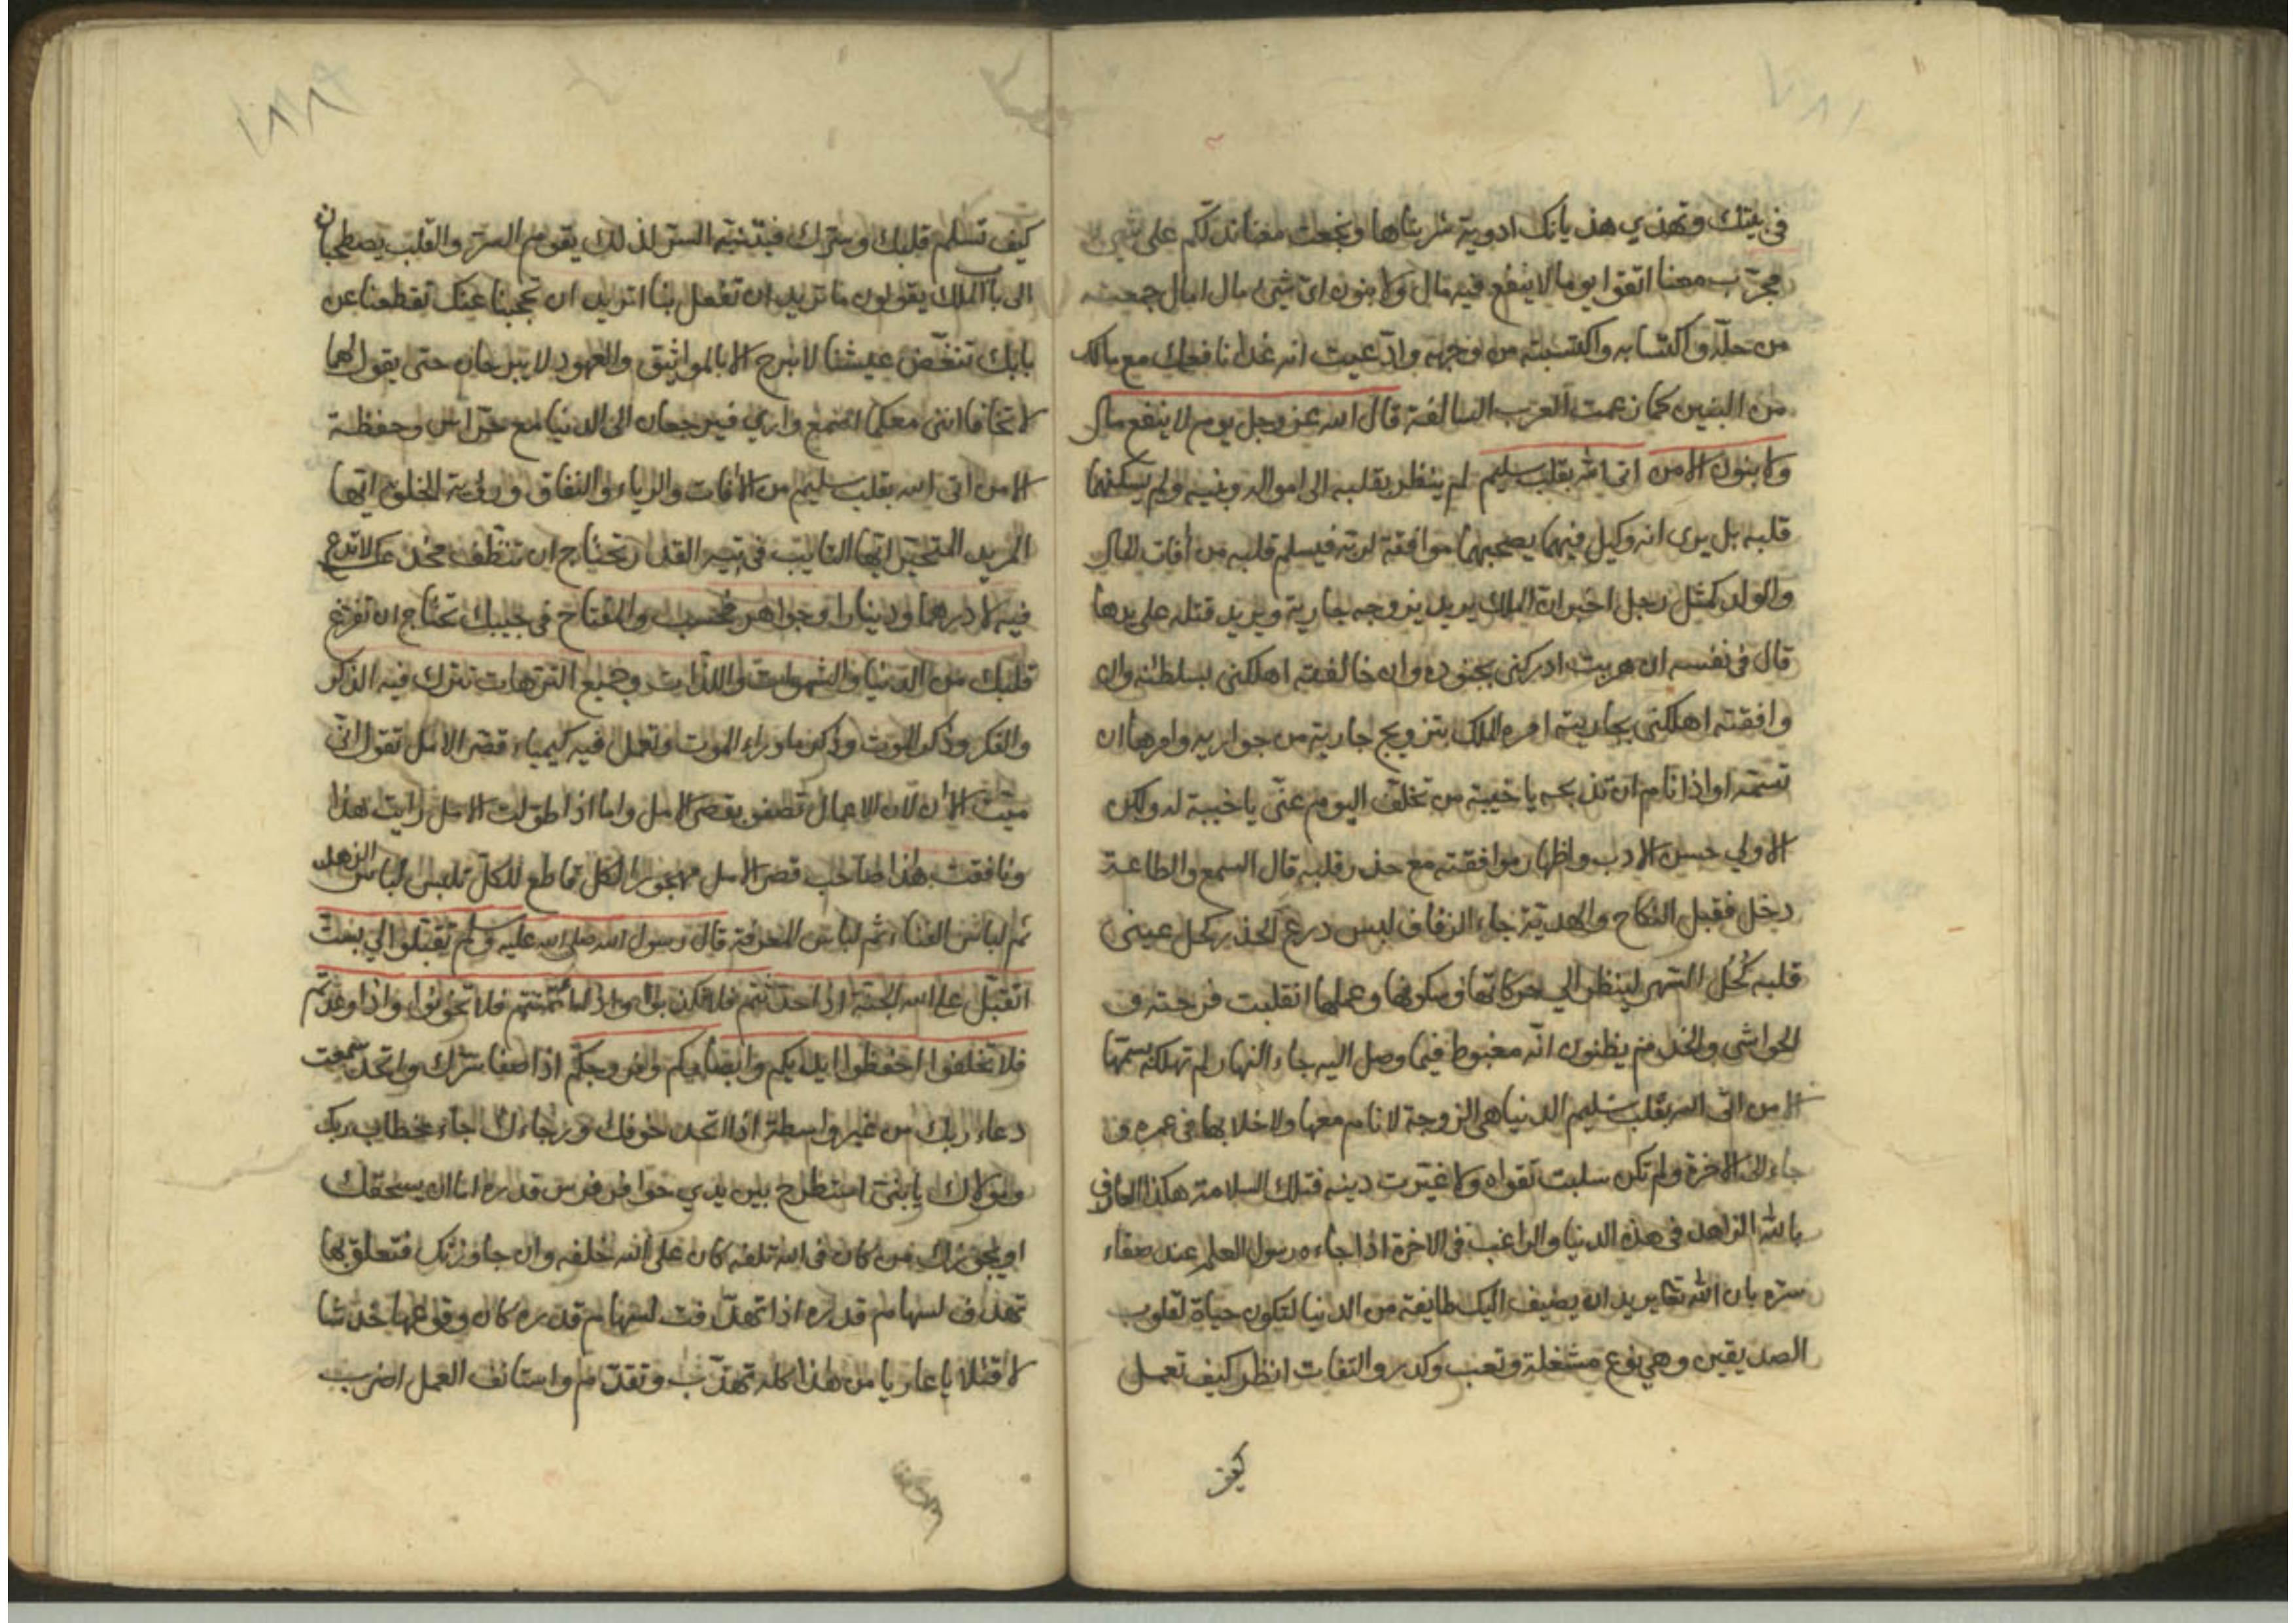 في بيتك وتهذي هذيانك ادوية شربناها ونجعت معنا ندلكم على شيء
مجرب معنا اتقوا يوما لا ينفع فيه مال ولا بنون اي شيء مال امال جمعته
من حله واكتسابه واكتسبته من وجهه وادعيت انه غدا نافعك مع مالك
من البنين كما زعمت العرب السالفة قال الله عز وجل يوم لا ينفع مال
ولا بنون الا من اتى الله بقلب سليم لم ينظر بقلبه الى امواله وبنيه ولم يسكنهما
قلبه بل يرى انه وكيل فيهما يصحبهما موافقة لربه فيسلم قلبه من آفات المال
والولد كمثل رجل اخبر ان الملك يريد يزوجه جارية ويريد قتله على يدها
قال في نفسه ان هربت ادركني بجنوده وان خالفته اهلكني بسلطنه وان
وافقته اهلكني بجاريته امره الملك بتزويج جارية من جواريه وامرها ان
تسمه او اذا نام ان تذبحه يا خيبة من تخلف اليوم عني يا خيبة له ولكن
الاولى حسن الادب واظهار موافقته مع حذر قلبه قال السمع والطاعة
دخل فقبل النكاح والهدية جاء الزفاف لبس درع الحذر كحل عيني
قلبه كحل السهر لينظر الى حركاتها وسكونها وعملها انقلبت فرحته و
الحواشي والخدم يظنون انه مغبوط فيما وصل اليه جاء النهار لم تهلكه بسمها
الا من اتى الله بقلب سليم الدنيا هي الزوجة لا نام معها ولا خلا بها في عمره و
جاء الى الاخرة ولم تكن سلبت تقواه ولا غيرت دينه فتلك السلامة هكذا العارف
بالله الزاهد في هذه الدنيا والراغب في الاخرة اذا جاءه رسول العلم عند صفاء
سره بان الله تعا يريد ان يضيف اليك طايفة من الدنيا لتكون حياة لقلوب
الصديقين وهي نوع مشغلة وتعب وكدر والتفات انظر كيف تعمل
كيف
١٨٩
كيف تسلم قلبك وسرك فبدنيه السر لذلك يقوم السر والقلب يصطحبان
الى باب الملك يقولون ما تريد ان تفعل بنا اتريد ان تحجبنا عنك تقطعنا عن
بابك تنغص عيشنا لا نبرح الا بالمواثيق والعهود لا يبرحان حتى يقول لهما
لا تخافا انني معكما اسمع وارى فيرجعان الى الدنيا مع حراس وحفظة
الا من اتى الله بقلب سليم من الآفات والرياء والنفاق ورؤية الخلق ايها
المريد المتحير ايها التايب في تيه القدر تحتاج ان تنظف مخدعك لا تدع
فيه لا درهما ودينارا وجواهر فحسب والمفتاح في جيبك تحتاج ان تفرغ
قلبك من الدنيا والشهوات واللذات وجميع الترهات تترك فيه الذكر
والفكر وذكر الموت وذكر ما وراء الموت وتعمل فيه كيمياء قصر الامل تقول اني
ميت الآن لان الاعمال تصفو بقصر الامل واما اذا طولت الامل رايت هذا
ونافقت هذا صاحب قصر الامل مهجور الكل قاطع للكل تلبس لباس الزهد
ثم لباس الفنا ثم لباس المعرفة قال رسول الله صلى الله عليه وسلم تقبلوا الي بست
اتقبل على الله الجنة اذا حدثتم فلا تكذبوا واذا ائتمنتم فلا تخونوا واذا وعدتم
فلا تخلفوا احفظوا ايديكم وابصاركم وفروجكم اذا صفا سرك واتحد سمعت
دعاء ربك من غير واسطة اذا اتحد خوفك ورجاءك جاء خطاب ربك
ومولاك يا بني استطرح بين يدي حوافر فرس قدره اما ان يسحقك
او يجوزك من كان في الله تلفه كان على الله خلفه وان جاوزتك فتعلق بها
تهدف لسهام قدره اذا تهدفت لسهام قدره كان وقوعها خدشا
لا قتلا يا عاريا من هذا كله تهذب وتقدم واستانف العمل اضرب